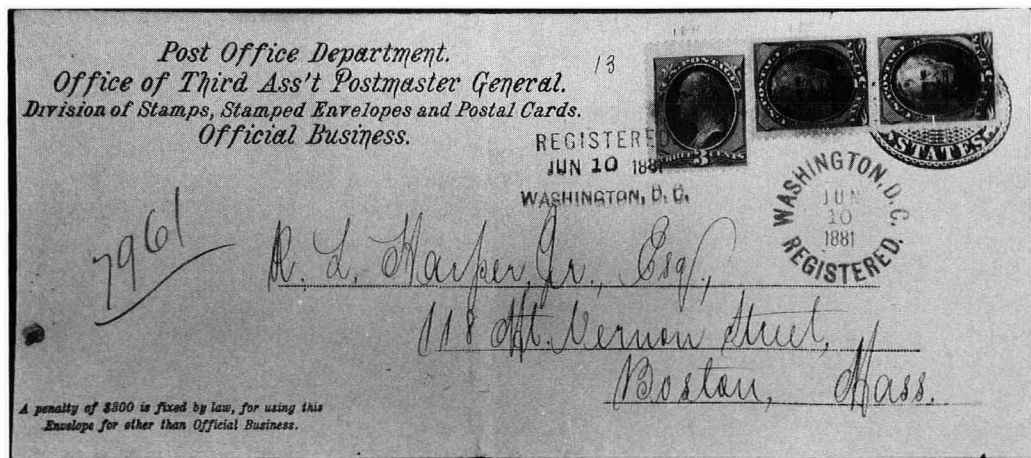 Post Office Department.
Office of Third Ass't Postmaster General.
Division of Stamps, Stamped Envelopes and Postal Cards.
Official Business.
13
POSTAGE
THREE 3 CENTS
STATES
REGISTERED
JUN 10 1881
WASHINGTON, D. C.
WASHINGTON, D.C.
JUN
10
1881
REGISTERED.
7961
R. L. Harper, Jr., Esq,
118 Mt. Vernon Street,
Boston, Mass.
A penalty of $300 is fixed by law, for using this
Envelope for other than Official Business.